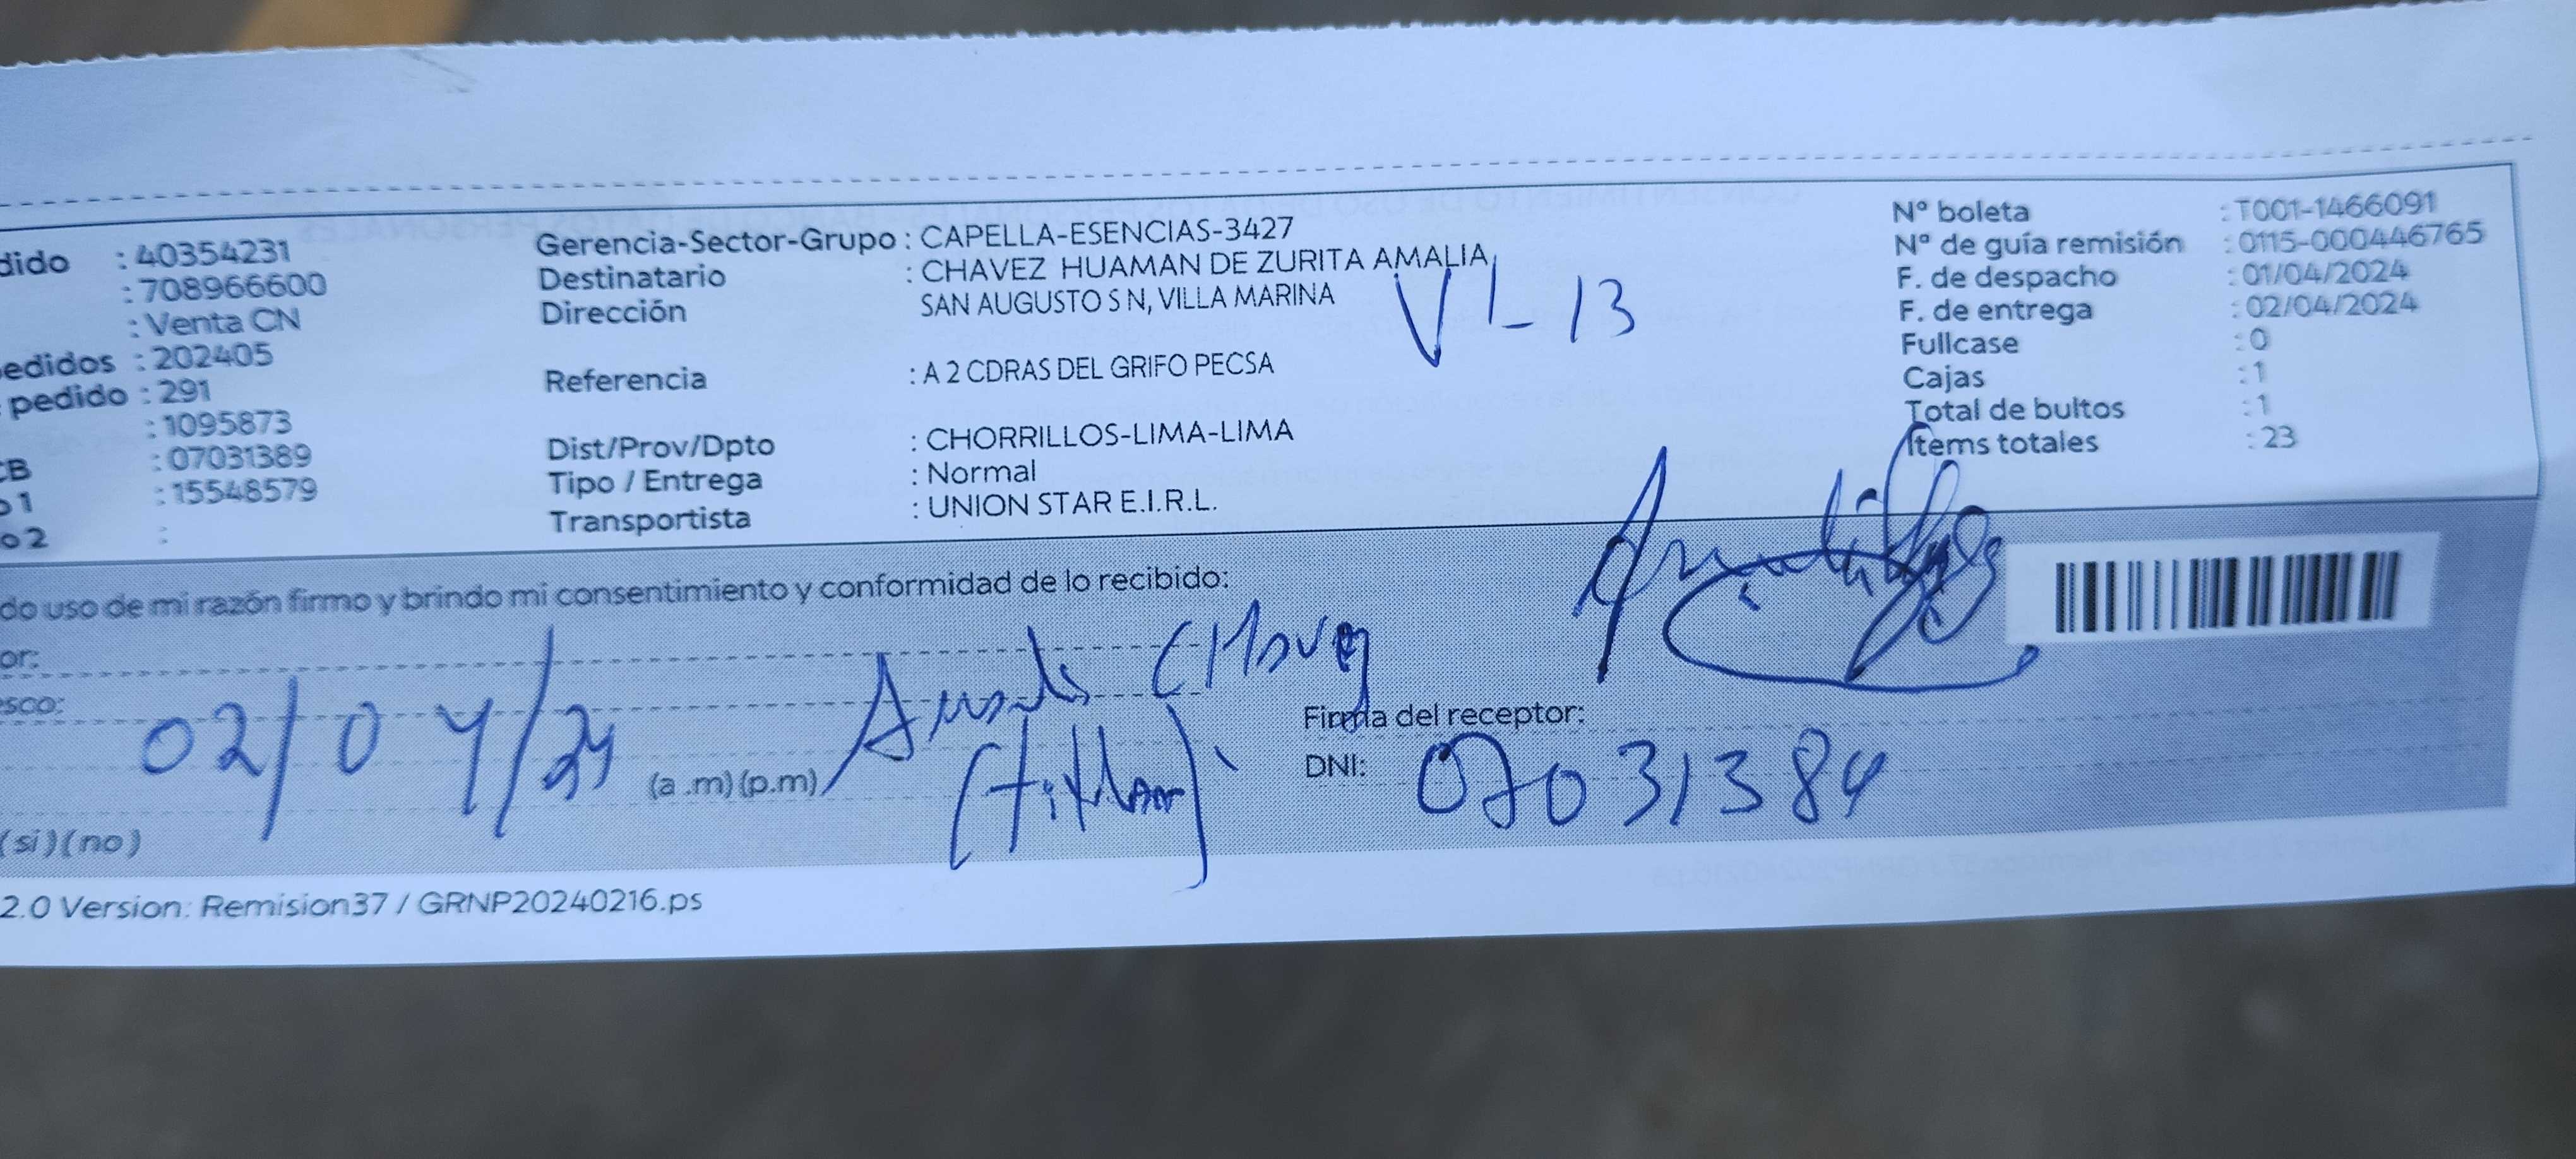 dido : 40354231
: 708966600
: Venta CN
edidos : 202405
pedido : 291
: 1095873
CB : 07031389
o 1 : 15548579
o 2 :
Gerencia-Sector-Grupo : CAPELLA-ESENCIAS-3427
Destinatario : CHAVEZ HUAMAN DE ZURITA AMALIA
Dirección SAN AUGUSTO S N, VILLA MARINA
VL-13
Referencia : A 2 CDRAS DEL GRIFO PECSA
Dist/Prov/Dpto : CHORRILLOS-LIMA-LIMA
Tipo / Entrega : Normal
Transportista : UNION STAR E.I.R.L.
Nº boleta : T001-1466091
Nº de guía remisión : 0115-000446765
F. de despacho : 01/04/2024
F. de entrega : 02/04/2024
Fullcase : 0
Cajas : 1
Total de bultos : 1
Ítems totales : 23
do uso de mi razón firmo y brindo mi consentimiento y conformidad de lo recibido:
or: Chavez
sco:
02/04/24 (a .m) (p.m) (titular)
Firma del receptor:
DNI: 07031389
(si) (no)
2.0 Version: Remision37 / GRNP20240216.ps